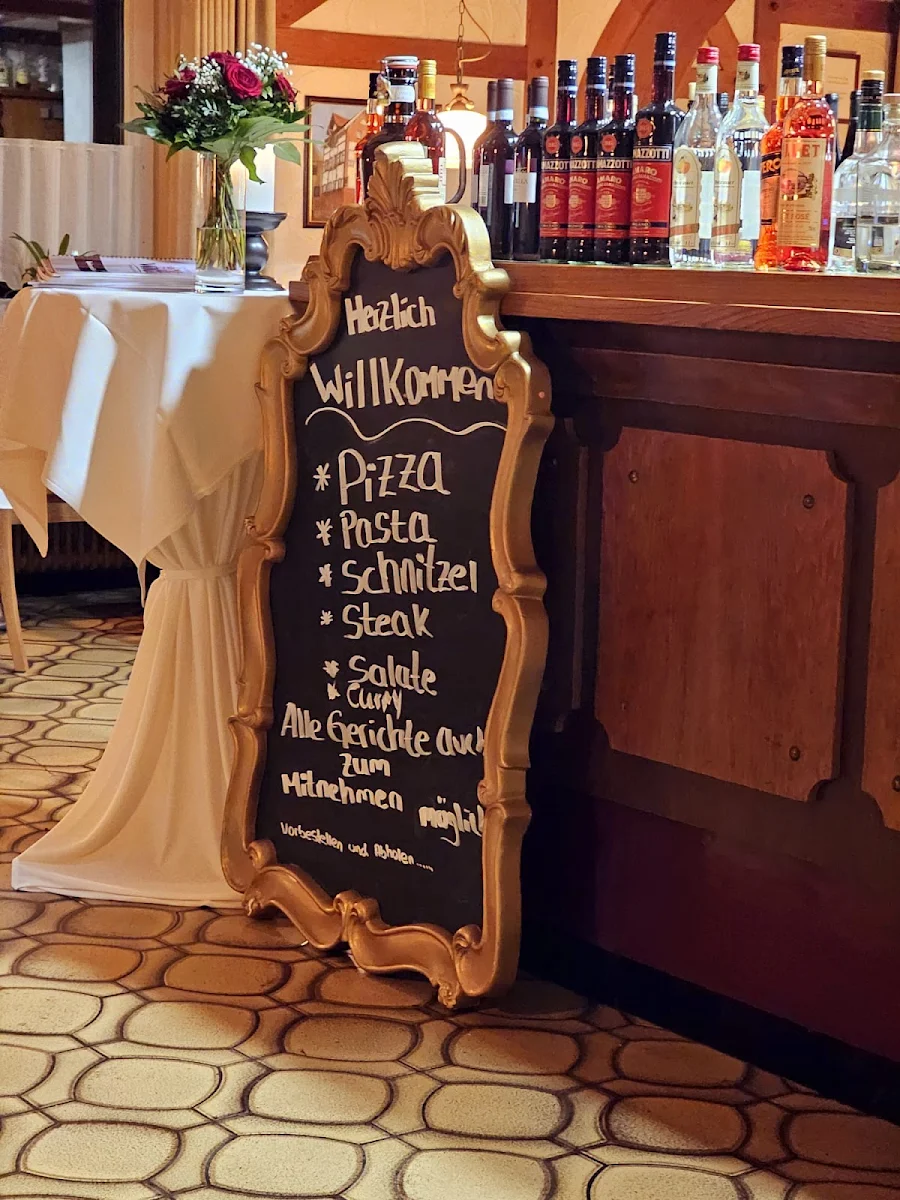 Herzlich
Willkommen
* Pizza
* Pasta
* Schnitzel
* Steak
* Salate
* Curry
Alle Gerichte auch
zum
Mitnehmen möglich
Vorbestellen und Abholen.....
MAZZOTTI
AMARO
MAZZOTTI
AMARO
MAZZOTTI
AMARO
MAZZOTTI
AMARO